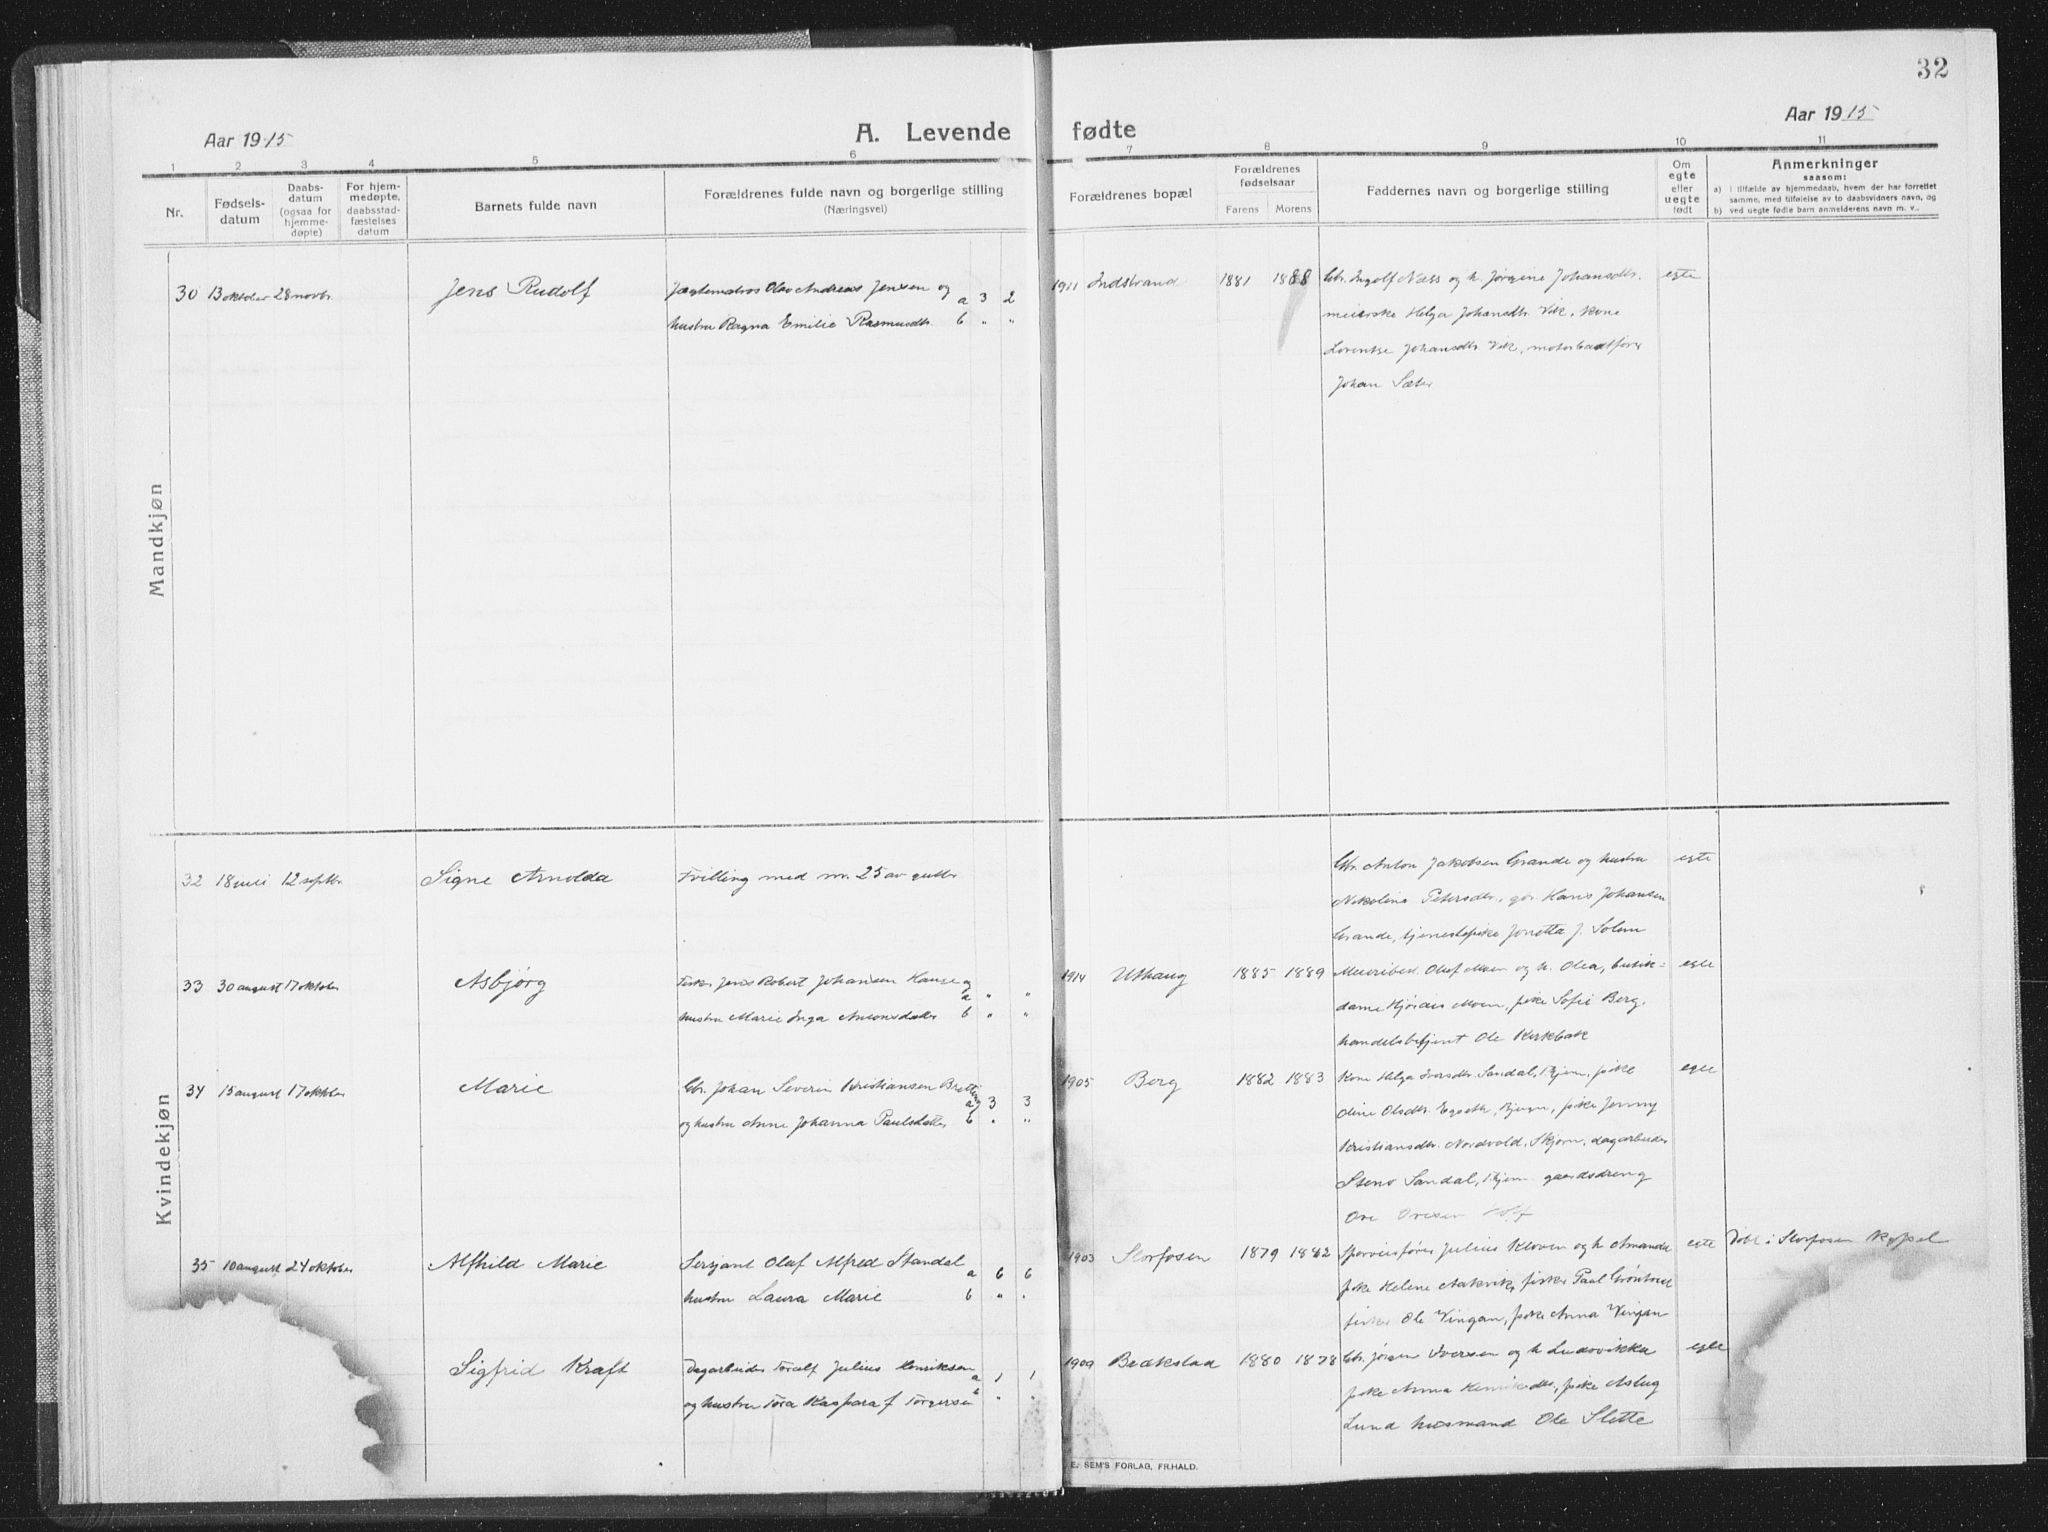 32
Aar 1915
A. Levende fødte
Aar 1915
1 2 3 4 5 6 7 8 9 10 11
Nr.
Fødsels-
datum
Daabs-
datum
(ogsaa for
hjemme-
døpte)
For hjem-
medøpte,
daabsstad-
fæstelses
datum
Barnets fulde navn
Forældrenes fulde navn og borgerlige stilling
(Næringsvei)
Forældrenes bopæl
Forældrenes
fødselsaar
Farens Morens
Faddernes navn og borgerlige stilling
Om
egte
eller
uegte
født
Anmerkninger
saasom:
a) i tilfælde av hjemmedaab, hvem der har forrettet
samme, med tilføielse av to daabsvidners navn, og
b) ved uegte fødte barn anmelderens navn m. v..
Mandkjøn
30 13 oktober 28 novbr. Jens Rudolf
Olav Andreas Jensen og a 3 2
hustru Ragna Emilie Rasmusdtr. b " "
1911 Indstrand 1881 1888
Gbr. Ingolf Næss og h. Jørgine Johansdtr. egte
meierske Helga Johansdtr. Vik, kone
Lorentse Johansdtr. Vik, motorbaatfører
Johan Sæter
Kvindekjøn
32 18 juli 12 septbr. Signe Arnolda
Tvilling med nr. 25 av gutter
Gbr. Anton Jakobsen Grande og hustru egte
Nikoline Petersdtr., gbr. Hans Johansen
Grande, tjenestepike Jonetta J. Solem
33 30 august 17 oktober Asbjørg
Fisker Jens Robert Johansen Hauge og a " "
hustru Marie Inga Antonsdatter b " "
1914 Uthaug 1885 1889
Meieribest. Oluf Moen og h. Olea, butik- egte
dame Hjørdis Moen, pike Sofie Berg,
handelsbetjent Ole Kirkbak
34 15 august 17 oktober Marie
Gbr. Johan Severin Kristiansen Bretting a 3 3
og hustru Anne Johanna Paulsdatter b " "
1905 Berg 1882 1883
Kone Helga Iversdr. Sandal, Skjørn, pike egte
Oline Olsdtr. Bjugn, pike Jenny
Kristiansdtr. Nordvold, Skjørn, dagarbeider
Sandal, Skjørn gaardsdreng
35 10 august 24 oktober Alfhild Marie
Sersjant Olaf Alfred Standal a 6 6
hustru Laura Marie b " "
1903 Storfosen 1879 1882
Julius Kloven og h. Amanda egte
pike Helene Aakvik, fisker Paul
fisker Ole Vingan, pike Anna Vingan
Døbt i Storfosen kapel
Sigfrid Kraft
Dagarbeider Toralf Julius Henriksen a 1 1
og hustru Tora Kaspara f Torgersen b " "
1909 Brækstad 1880 1878
Gbr. Jørgen Iversen og h. Ludovikka egte
pike Anna Henriksdtr., pike Aslug
Lund husmand Ole Slette
E. SEM'S FORLAG, FR.HALD.